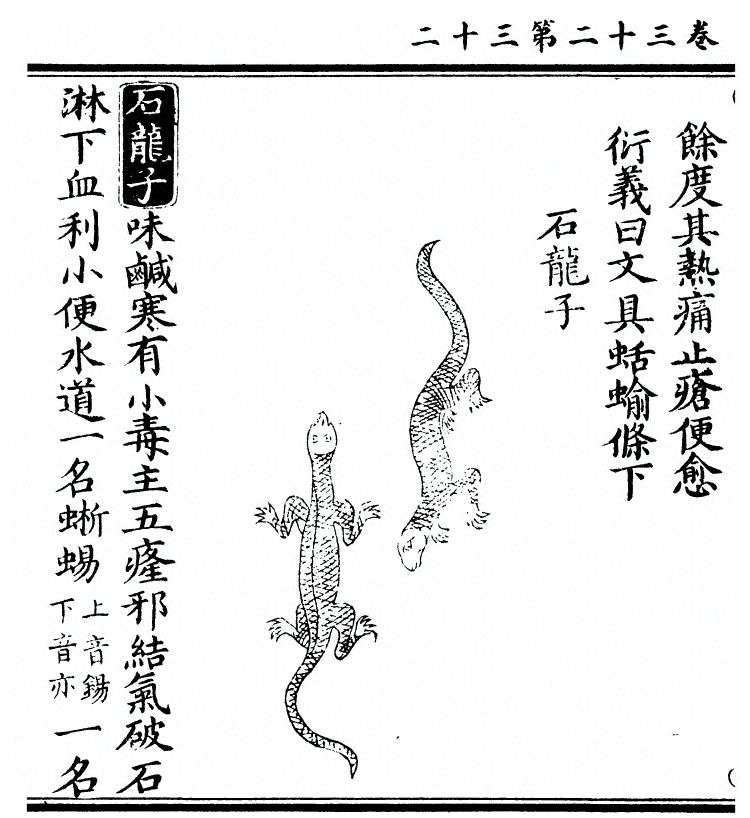 卷三十二第三十二
餘度其熱痛止瘡便愈
衍義曰文具蛞蝓條下
石龍子
石龍子味鹹寒有小毒主五癃邪結氣破石
淋下血利小便水道一名蜥蜴上音錫下音亦一名